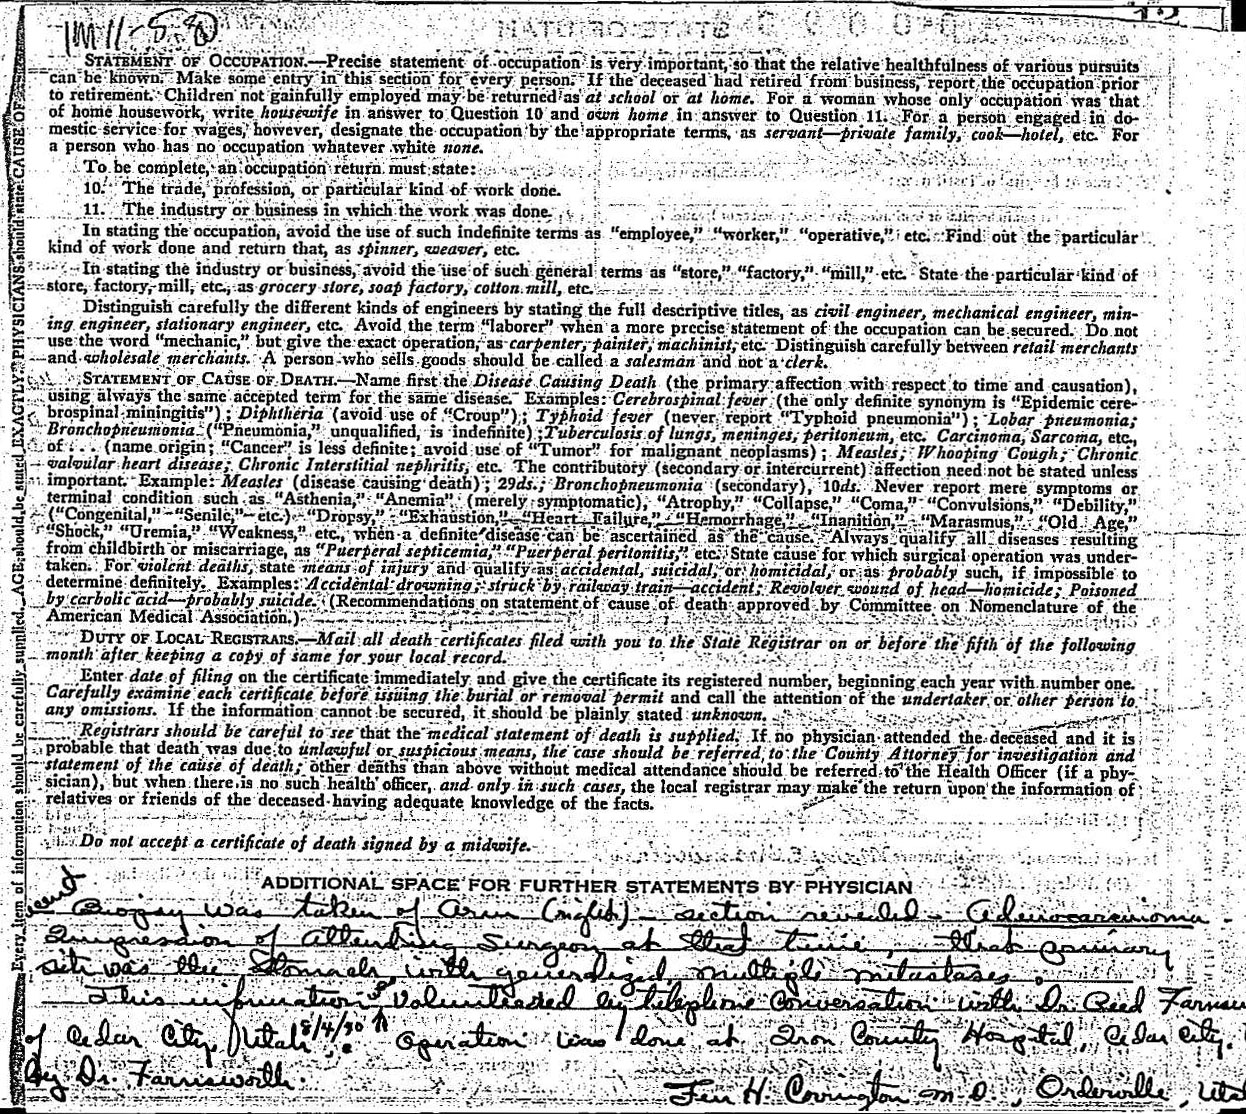 STATEMENT OF OCCUPATION.—Precise statement of occupation is very important, so that the relative healthfulness of various pursuits
can be known. Make some entry in this section for every person. If the deceased had retired from business, report the occupation prior
to retirement. Children not gainfully employed may be returned as at school or at home. For a woman whose only occupation was that
of home housework, write housewife in answer to Question 10 and own home in answer to Question 11. For a person engaged in do-
mestic service for wages, however, designate the occupation by the appropriate terms, as servant—private family, cook—hotel, etc. For
a person who has no occupation whatever white none.
To be complete, an occupation return must state:
10. The trade, profession, or particular kind of work done.
11. The industry or business in which the work was done.
In stating the occupation, avoid the use of such indefinite terms as "employee," "worker," "operative," etc. Find out the particular
kind of work done and return that, as spinner, weaver, etc.
In stating the industry or business, avoid the use of such general terms as "store," "factory," "mill," etc. State the particular kind of
store, factory, mill, etc., as grocery store, soap factory, cotton mill, etc.
Distinguish carefully the different kinds of engineers by stating the full descriptive titles, as civil engineer, mechanical engineer, min-
ing engineer, stationary engineer, etc. Avoid the term "laborer" when a more precise statement of the occupation can be secured. Do not
use the word "mechanic," but give the exact operation, as carpenter, painter, machinist, etc. Distinguish carefully between retail merchants
and wholesale merchants. A person who sells goods should be called a salesman and not a clerk.
STATEMENT OF CAUSE OF DEATH.—Name first the Disease Causing Death (the primary affection with respect to time and causation),
using always the same accepted term for the same disease. Examples: Cerebrospinal fever (the only definite synonym is "Epidemic cere-
brospinal miningitis"); Diphtheria (avoid use of "Croup"); Typhoid fever (never report "Typhoid pneumonia"); Lobar pneumonia;
Bronchopneumonia ("Pneumonia," unqualified, is indefinite); Tuberculosis of lungs, meninges, peritoneum, etc. Carcinoma, Sarcoma, etc.,
of . . . (name origin; "Cancer" is less definite; avoid use of "Tumor" for malignant neoplasms); Measles; Whooping Cough; Chronic
valvular heart disease; Chronic Interstitial nephritis, etc. The contributory (secondary or intercurrent) affection need not be stated unless
important. Example: Measles (disease causing death); 29ds.; Bronchopneumonia (secondary), 10ds. Never report mere symptoms or
terminal condition such as "Asthenia," "Anemia" (merely symptomatic), "Atrophy," "Collapse," "Coma," "Convulsions," "Debility,"
("Congenital," "Senile," etc.) "Dropsy," "Exhaustion," "Heart Failure," "Hemorrhage," "Inanition," "Marasmus," "Old Age,"
"Shock," "Uremia," "Weakness," etc., when a definite disease can be ascertained as the cause. Always qualify all diseases resulting
from childbirth or miscarriage, as "Puerperal septicemia," "Puerperal peritonitis," etc. State cause for which surgical operation was under-
taken. For violent deaths, state means of injury and qualify as accidental, suicidal, or homicidal, or as probably such, if impossible to
determine definitely. Examples: Accidental drowning; struck by railway train—accident; Revolver wound of head—homicide; Poisoned
by carbolic acid—probably suicide. (Recommendations on statement of cause of death approved by Committee on Nomenclature of the
American Medical Association.)
DUTY OF LOCAL REGISTRARS.—Mail all death certificates filed with you to the State Registrar on or before the fifth of the following
month after keeping a copy of same for your local record.
Enter date of filing on the certificate immediately and give the certificate its registered number, beginning each year with number one.
Carefully examine each certificate before issuing the burial or removal permit and call the attention of the undertaker or other person to
any omissions. If the information cannot be secured, it should be plainly stated unknown.
Registrars should be careful to see that the medical statement of death is supplied. If no physician attended the deceased and it is
probable that death was due to unlawful or suspicious means, the case should be referred to the County Attorney for investigation and
statement of the cause of death; other deaths than above without medical attendance should be referred to the Health Officer (if a phy-
sician), but when there is no such health officer, and only in such cases, the local registrar may make the return upon the information of
relatives or friends of the deceased having adequate knowledge of the facts.
Do not accept a certificate of death signed by a midwife.
ADDITIONAL SPACE FOR FURTHER STATEMENTS BY PHYSICIAN
Biopsy was taken of arm (right) – section revealed – Adenocarcinoma –
Impression of attending Surgeon at that time, that primary
site was the Stomach, with generalized multiple mitastases.
This information volunteered by telephone conversation with Dr. Reed
of Cedar City, Utah 8/4/50 Operation was done at Iron County Hospital, Cedar City.
by Dr. Farnsworth.
H. Covington M.D., Orderville, Utah
Every item of information should be carefully supplied. AGE should be stated EXACTLY. PHYSICIANS should state CAUSE OF